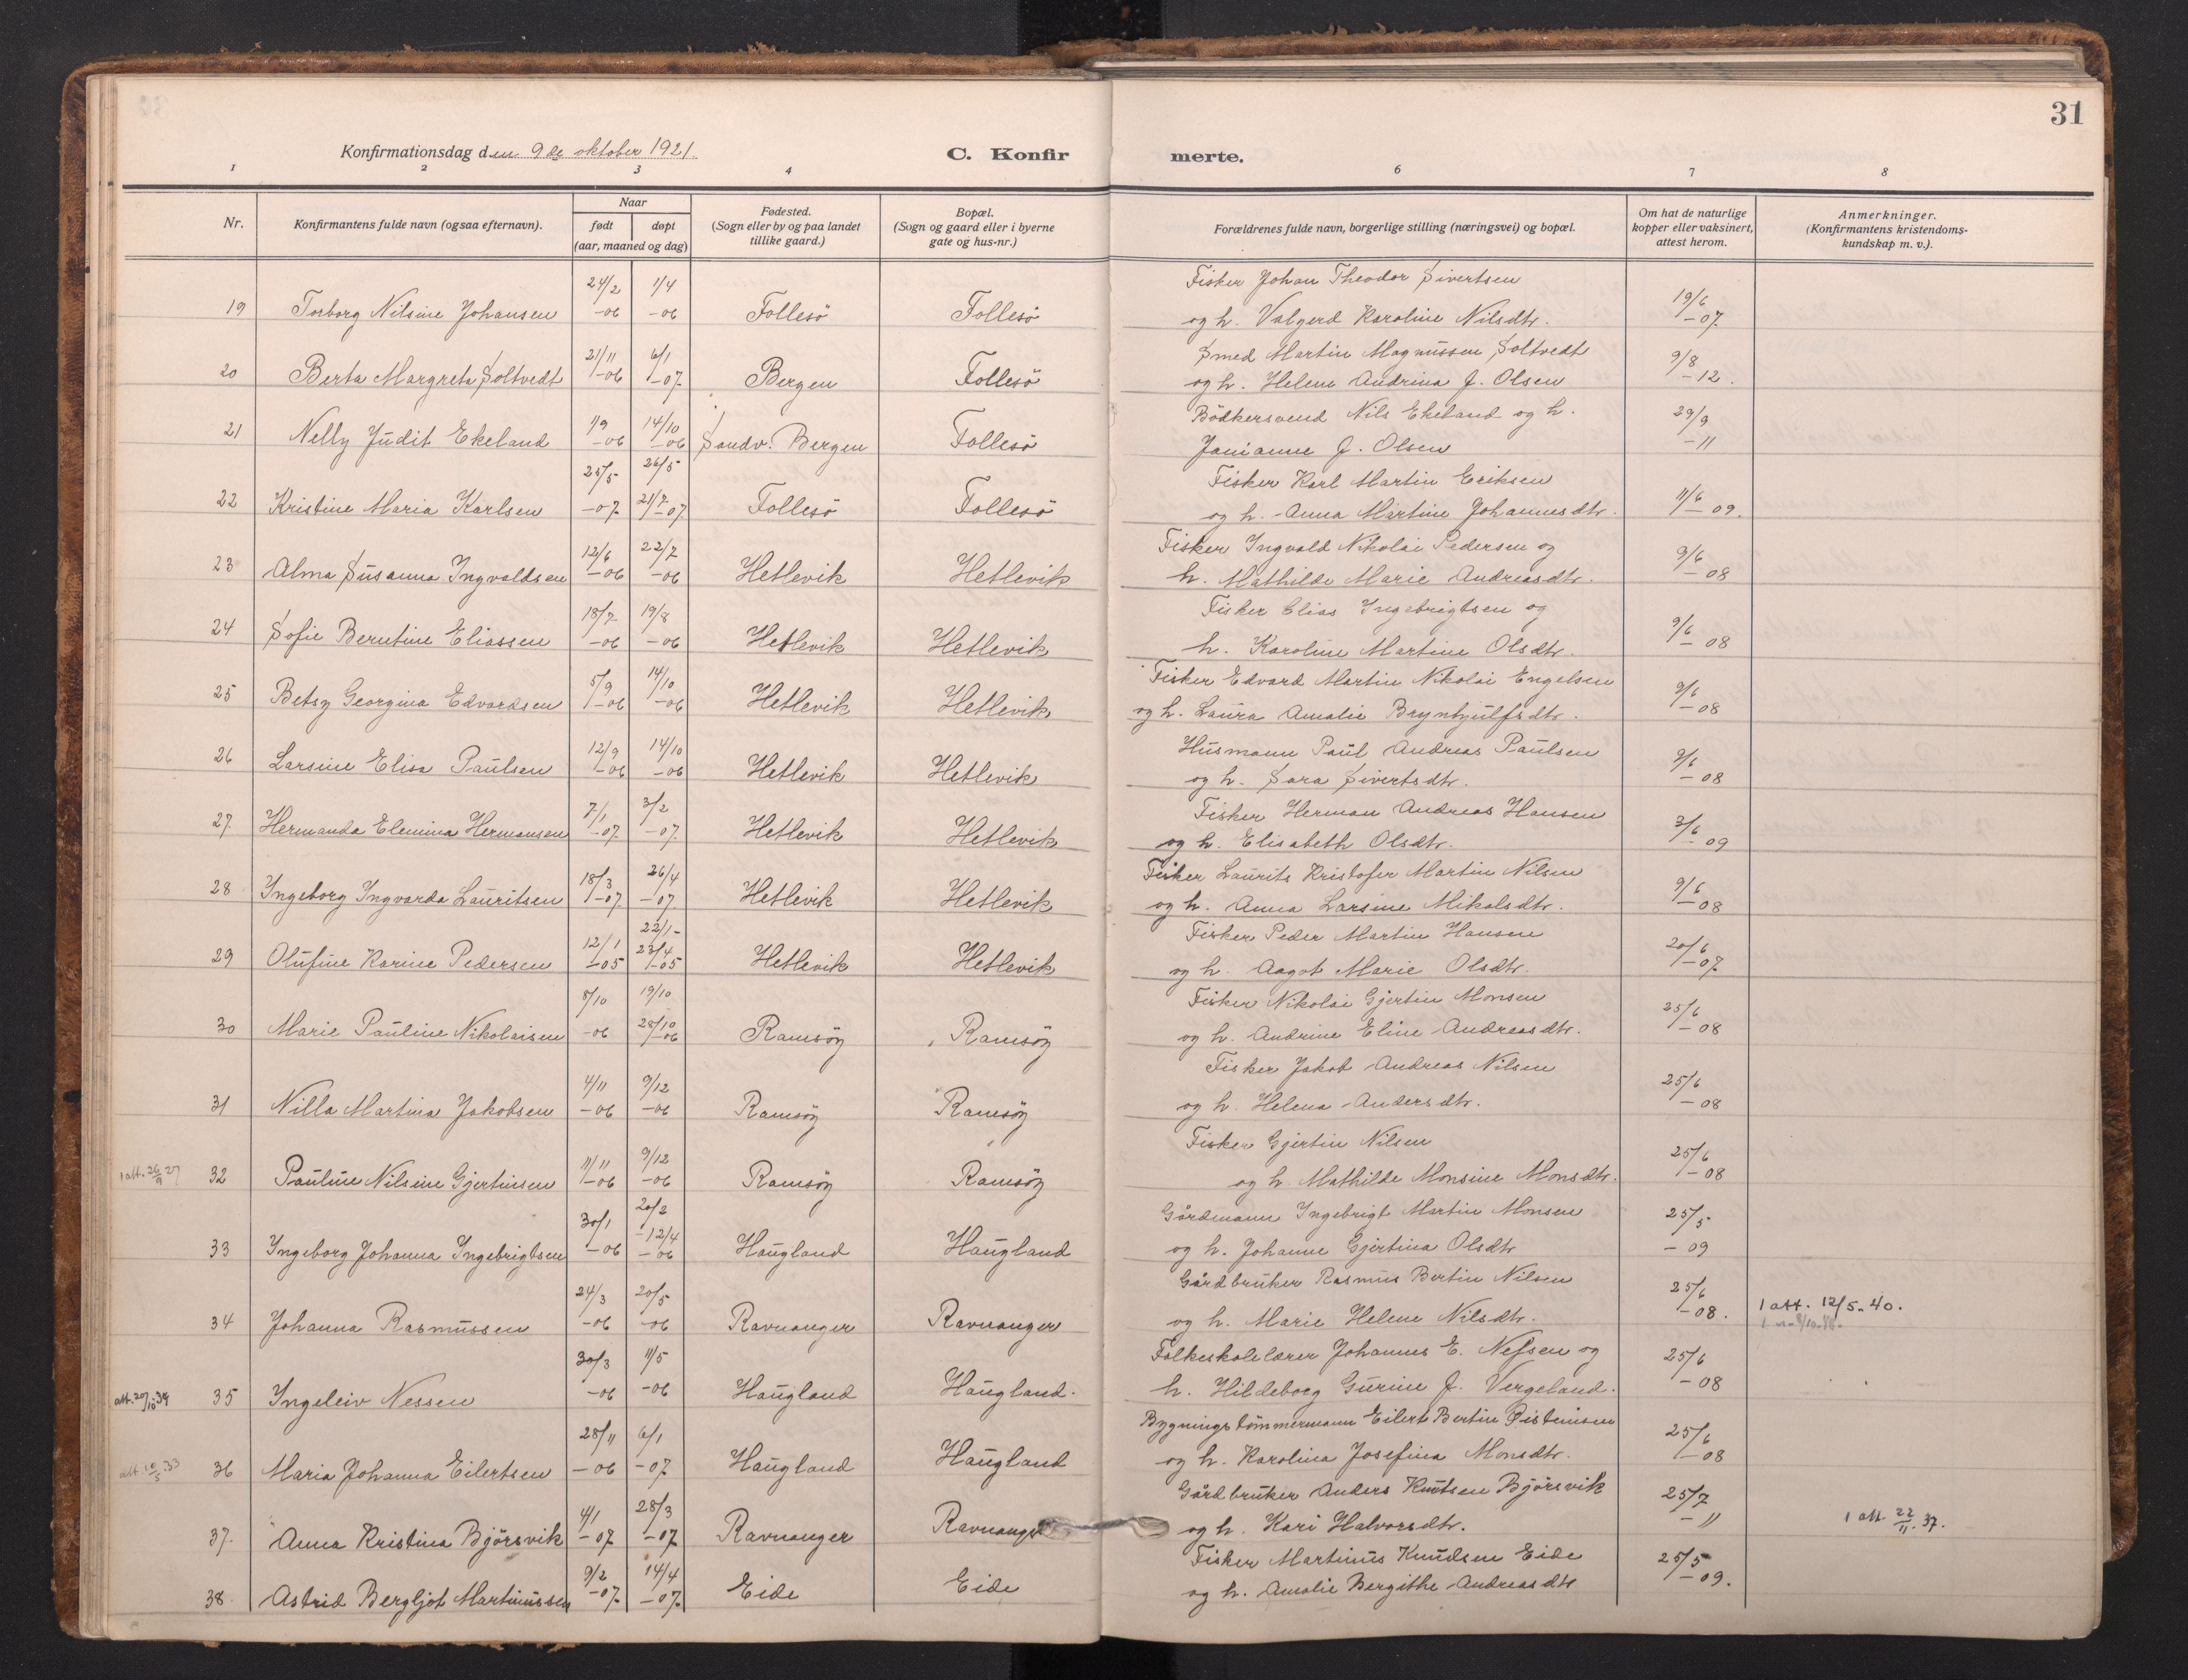 31
Konfirmationsdag den 9de oktober 1921.
C. Konfir merte.
1 2 3 4 6 7 8
Nr.
Konfirmantens fulde navn (ogsaa efternavn).
Naar
født døpt
(aar, maaned og dag)
Fødested.
(Sogn eller by og paa landet
tillike gaard.)
Bopæl.
(Sogn og gaard eller i byerne
gate og hus-nr.)
Forældrenes fulde navn, borgerlige stilling (næringsvei) og bopæl.
Om hat de naturlige
kopper eller vaksinert,
attest herom.
Anmerkninger.
(Konfirmantens kristendoms-
kundskap m. v.).
24/2 1/4 Fisker Johan Theodor Sivertsen
19 Torborg Nilsine Johansen -06 -06 Follesö Follesö og h. Valgerd Karoline Nilsdtr. 19/6 -07
21/11 6/1 Smed Martin Magnussen Soltvedt
20 Berta Margreta Soltvedt -06 -07 Bergen Follesö og h. Helene Andrina J. Olsen 9/8 -12.
1/9 14/10 Bödkersvend Nils Ekeland og h.
21 Nelly Judit Ekeland -06 -06 Sandv. Bergen Follesö Janianne J. Olsen 29/9 -11
25/5 26/5 Fisker Karl Martin Eriksen
22 Kristine Maria Karlsen -07 21/7-07 Follesö Follesö og h. Anna Martine Johannesdtr. 11/6 -09.
12/6 22/7 Fisker Ingvald Nikolai Pedersen og
23 Alma Susanna Ingvaldsen -06 -06 Hetlevik Hetlevik h. Mathilde Marie Andreasdtr. 9/6 -08
18/7 19/8 Fisker Elias Ingebrigtsen og
24 Sofie Berntine Eliassen -06 -06 Hetlevik Hetlevik h. Karoline Martine Olsdtr. 9/6 -08
5/9 14/10 Fisker Edvard Martin Nikolai Engelsen
25 Betsy Georgina Edvardsen -06 -06 Hetlevik Hetlevik og h. Laura Amalie Brynhjulfsdtr. 9/6 -08
12/9 14/10 Husmann Paul Andreas Paulsen
26 Larsine Elisa Paulsen -06 -06 Hetlevik Hetlevik og h. Sara Sivertsdtr. 9/6 -08
7/1 3/2 Fisker Herman Andreas Hansen
27 Hermanda Elemina Hermansen -07 -07 Hetlevik Hetlevik og h. Elisabeth Olsdtr. 3/6 -09
18/3 26/4 Fisker Laurits Kristofer Martin Nilsen
28 Ingeborg Ingvarda Lauritsen -07 -07 Hetlevik Hetlevik og h. Anna Larsine Mikalsdtr. 9/6 -08
12/1 22/1- Fisker Peder Martin Hansen
29 Olufine Karine Pedersen -05 23/4-05 Hetlevik Hetlevik og h. Aagot Marie Olsdtr. 20/6 -07
8/10 19/10 Fisker Nikolai Gjertin Monsen
30 Marie Pauline Nikolaisen -06 28/10-06 Ramsöy Ramsöy og h. Andrine Eline Andreasdtr. 25/6 -08
4/11 9/12 Fisker Jakob Andreas Nilsen
31 Nilla Martina Jakobsen -06 -06 Ramsöy Ramsöy og h. Helena Andersdtr. 25/6 -08
11/11 9/12 Fisker Gjertin Nilsen
1 att. 26/9 27 32 Pauline Nilsine Gjertinsen -06 -06 Ramsöy Ramsöy og h. Mathilde Monsine Monsdtr. 25/6 -08
30/1 20/2 Gårdmann Ingebrigt Martin Monsen
33 Ingeborg Johanna Ingebrigtsen -06 -12/4 -06 Haugland Haugland og h. Johanne Gjertina Olsdtr 25/5 -09
24/3 20/5 Gårdbruker Rasmus Bertin Nilsen
34 Johanna Rasmussen -06 -06 Ravnanger Ravnanger og h. Marie Helene Nilsdtr. 25/6 -08. 1 att. 12/5-40.
30/3 11/5 Folkeskolelærer Johannes E. Nessen og
att. 20/10 34 35 Ingeleiv Nessen -06 -06 Haugland Haugland. h. Hildeborg Gurine J. Vergeland. 25/6 -08
28/11 6/1 Bygningstömmermann Eilert Bertin Östensen
att. 33 36 Maria Johanna Eilertsen -06 -07 Haugland Haugland og h. Karolina Josefina Monsdtr. 25/6 -08
4/1 28/3 Gårdbruker Anders Knutsen Björsvik
37. Anna Kristina Björsvik -07 -07 Ravnanger Ravnanger og h. Kari Halvorsdtr. 25/7 -11 1 att. 22/11.37.
9/2 14/4 Fisker Martinus Knudsen Eide
38. Astrid Bergljot Martinussen -07 -07 Eide Eide og h. Amalie Bergithe Andreasdtr 25/5 -09.